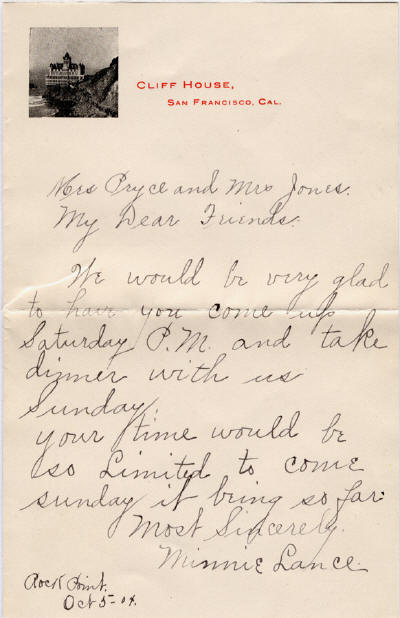 CLIFF HOUSE,
SAN FRANCISCO, CAL.
Mrs Pryce and Mrs Jones.
My Dear Friends.
We would be very glad
to have you come up
Saturday P.M. and take
dinner with us
Sunday.
your time would be
so Limited to come
sunday it being so far.
Most Sincerely.
Minnie Lance.
Rock Point.
Oct 5-04.